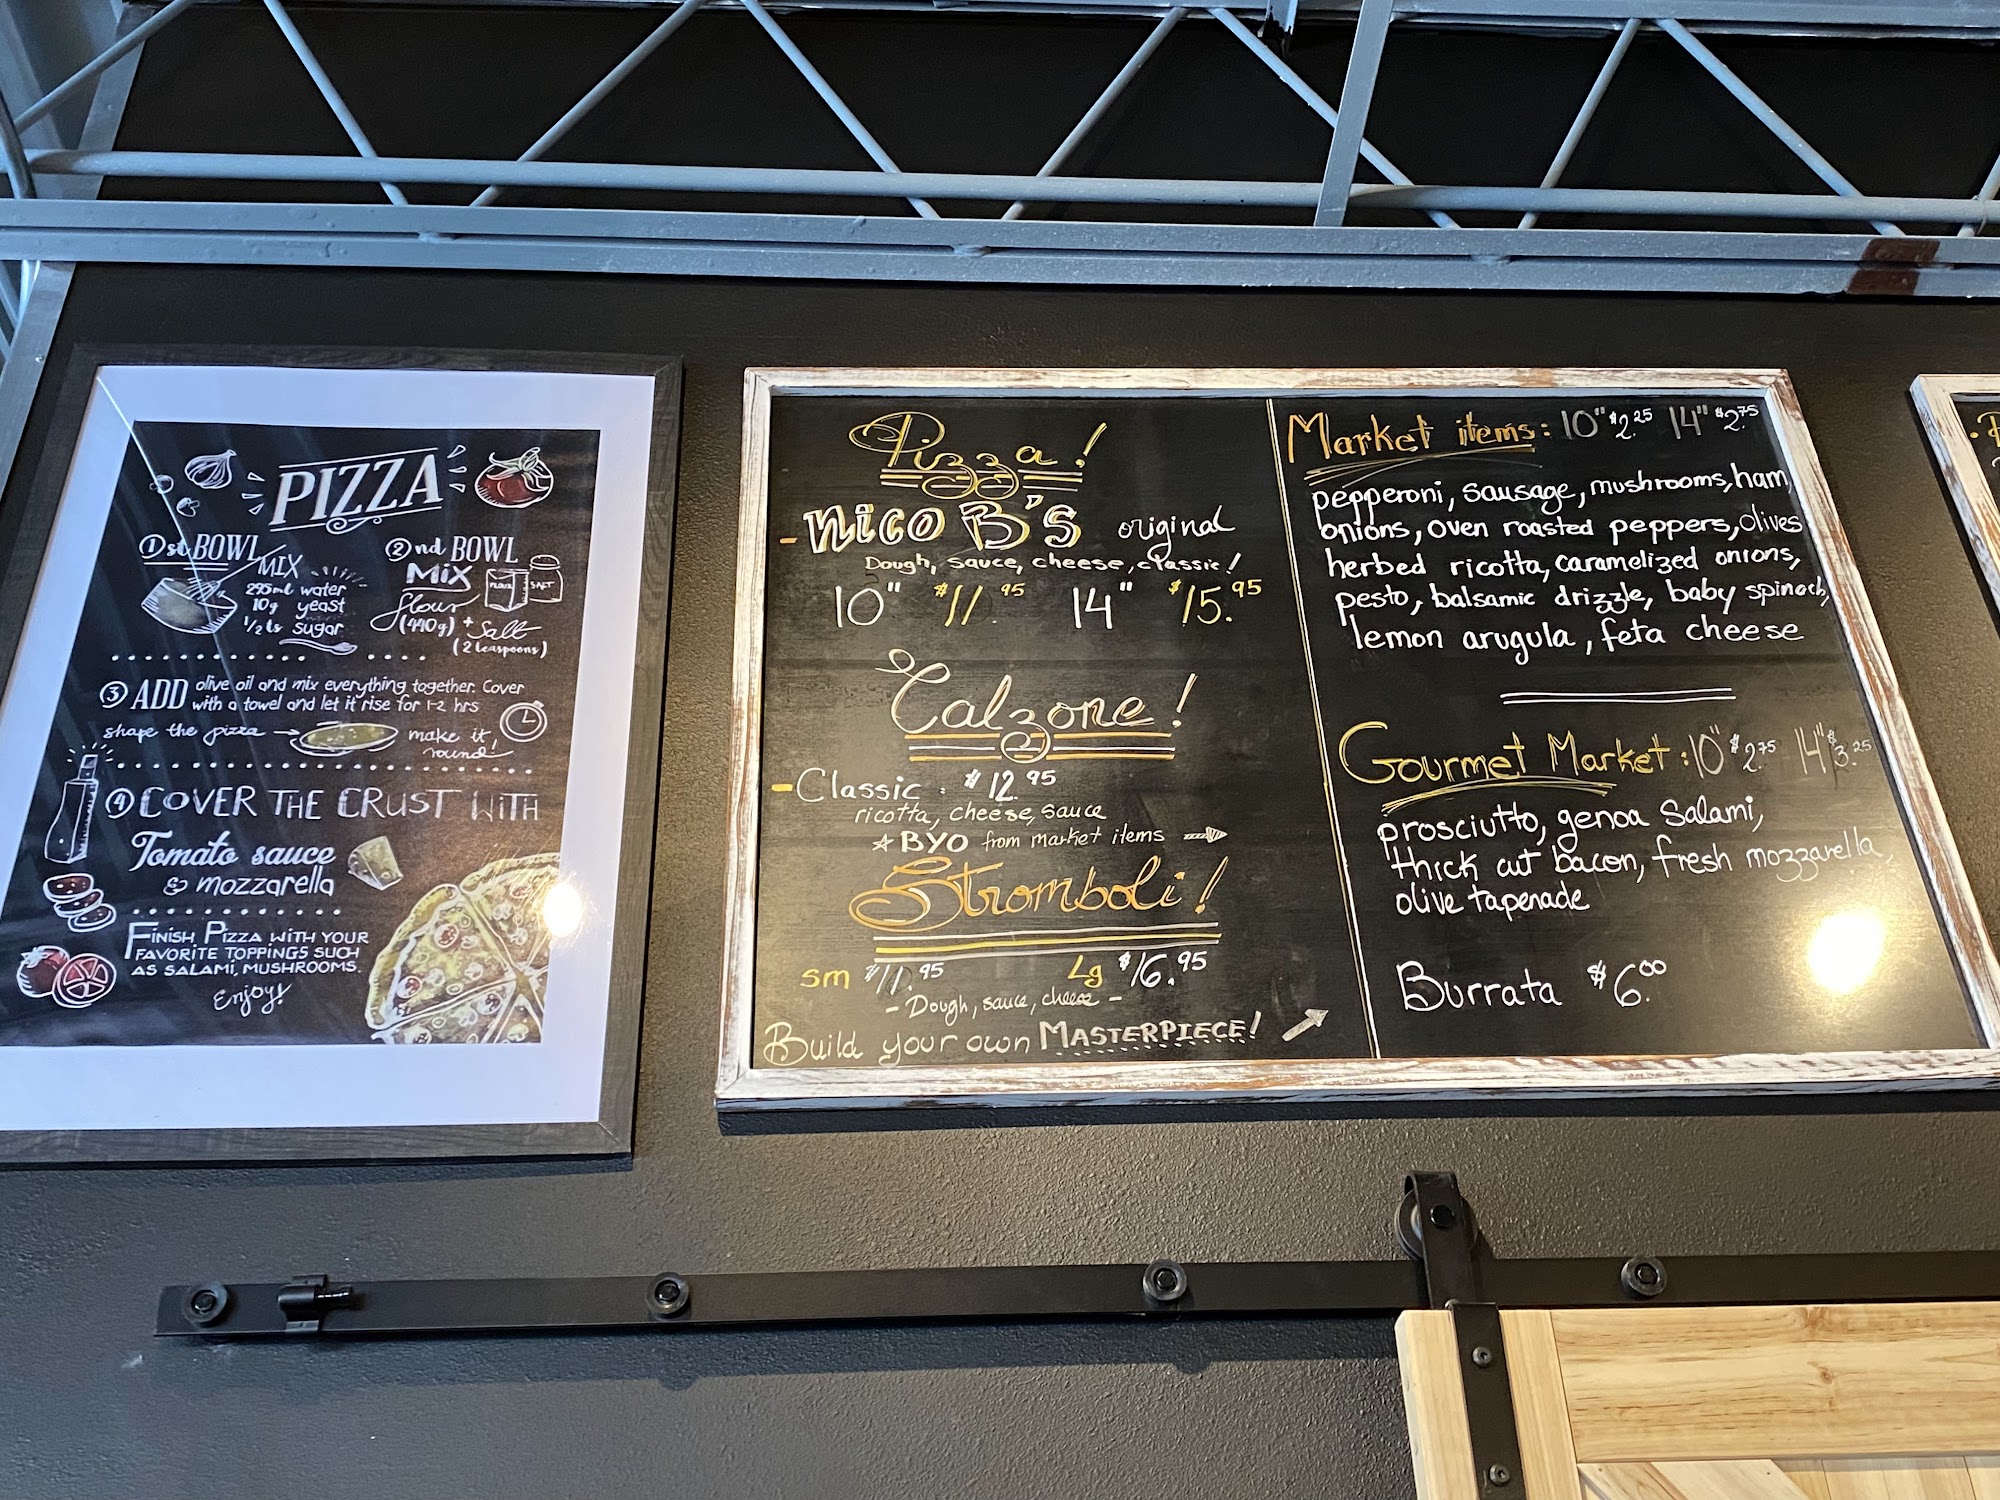 PIZZA
1st BOWL
MIX
295ml water
10g yeast
1/2 ts sugar
2nd BOWL
MIX
flour
(440g) +
Salt
(2 teaspoons)
FLOUR
SALT
3 ADD olive oil and mix everything together. Cover
with a towel and let it rise for 1-2 hrs
shape the pizza
make it
round!
4 COVER THE CRUST WITH
Tomato sauce
& mozzarella
FINISH PIZZA WITH YOUR
FAVORITE TOPPINGS SUCH
AS SALAMI, MUSHROOMS.
Enjoy!
Pizza!
- nico B's original
Dough, sauce, cheese, classic!
10" $11.95 14" $15.95
Calzone!
- Classic: $12.95
ricotta, cheese, sauce
☆ BYO from market items
Stromboli!
sm $11.95 Lg $16.95
- Dough, sauce, cheese -
Build your own MASTERPIECE!
Market items: 10" $2.25 14" $2.75
pepperoni, sausage, mushrooms, ham,
onions, oven roasted peppers, olives
herbed ricotta, caramelized onions,
pesto, balsamic drizzle, baby spinach,
lemon arugula, feta cheese
Gourmet Market: 10" $2.75 14" $3.25
prosciutto, genoa Salami,
thick cut bacon, fresh mozzarella,
olive tapenade
Burrata $6.00